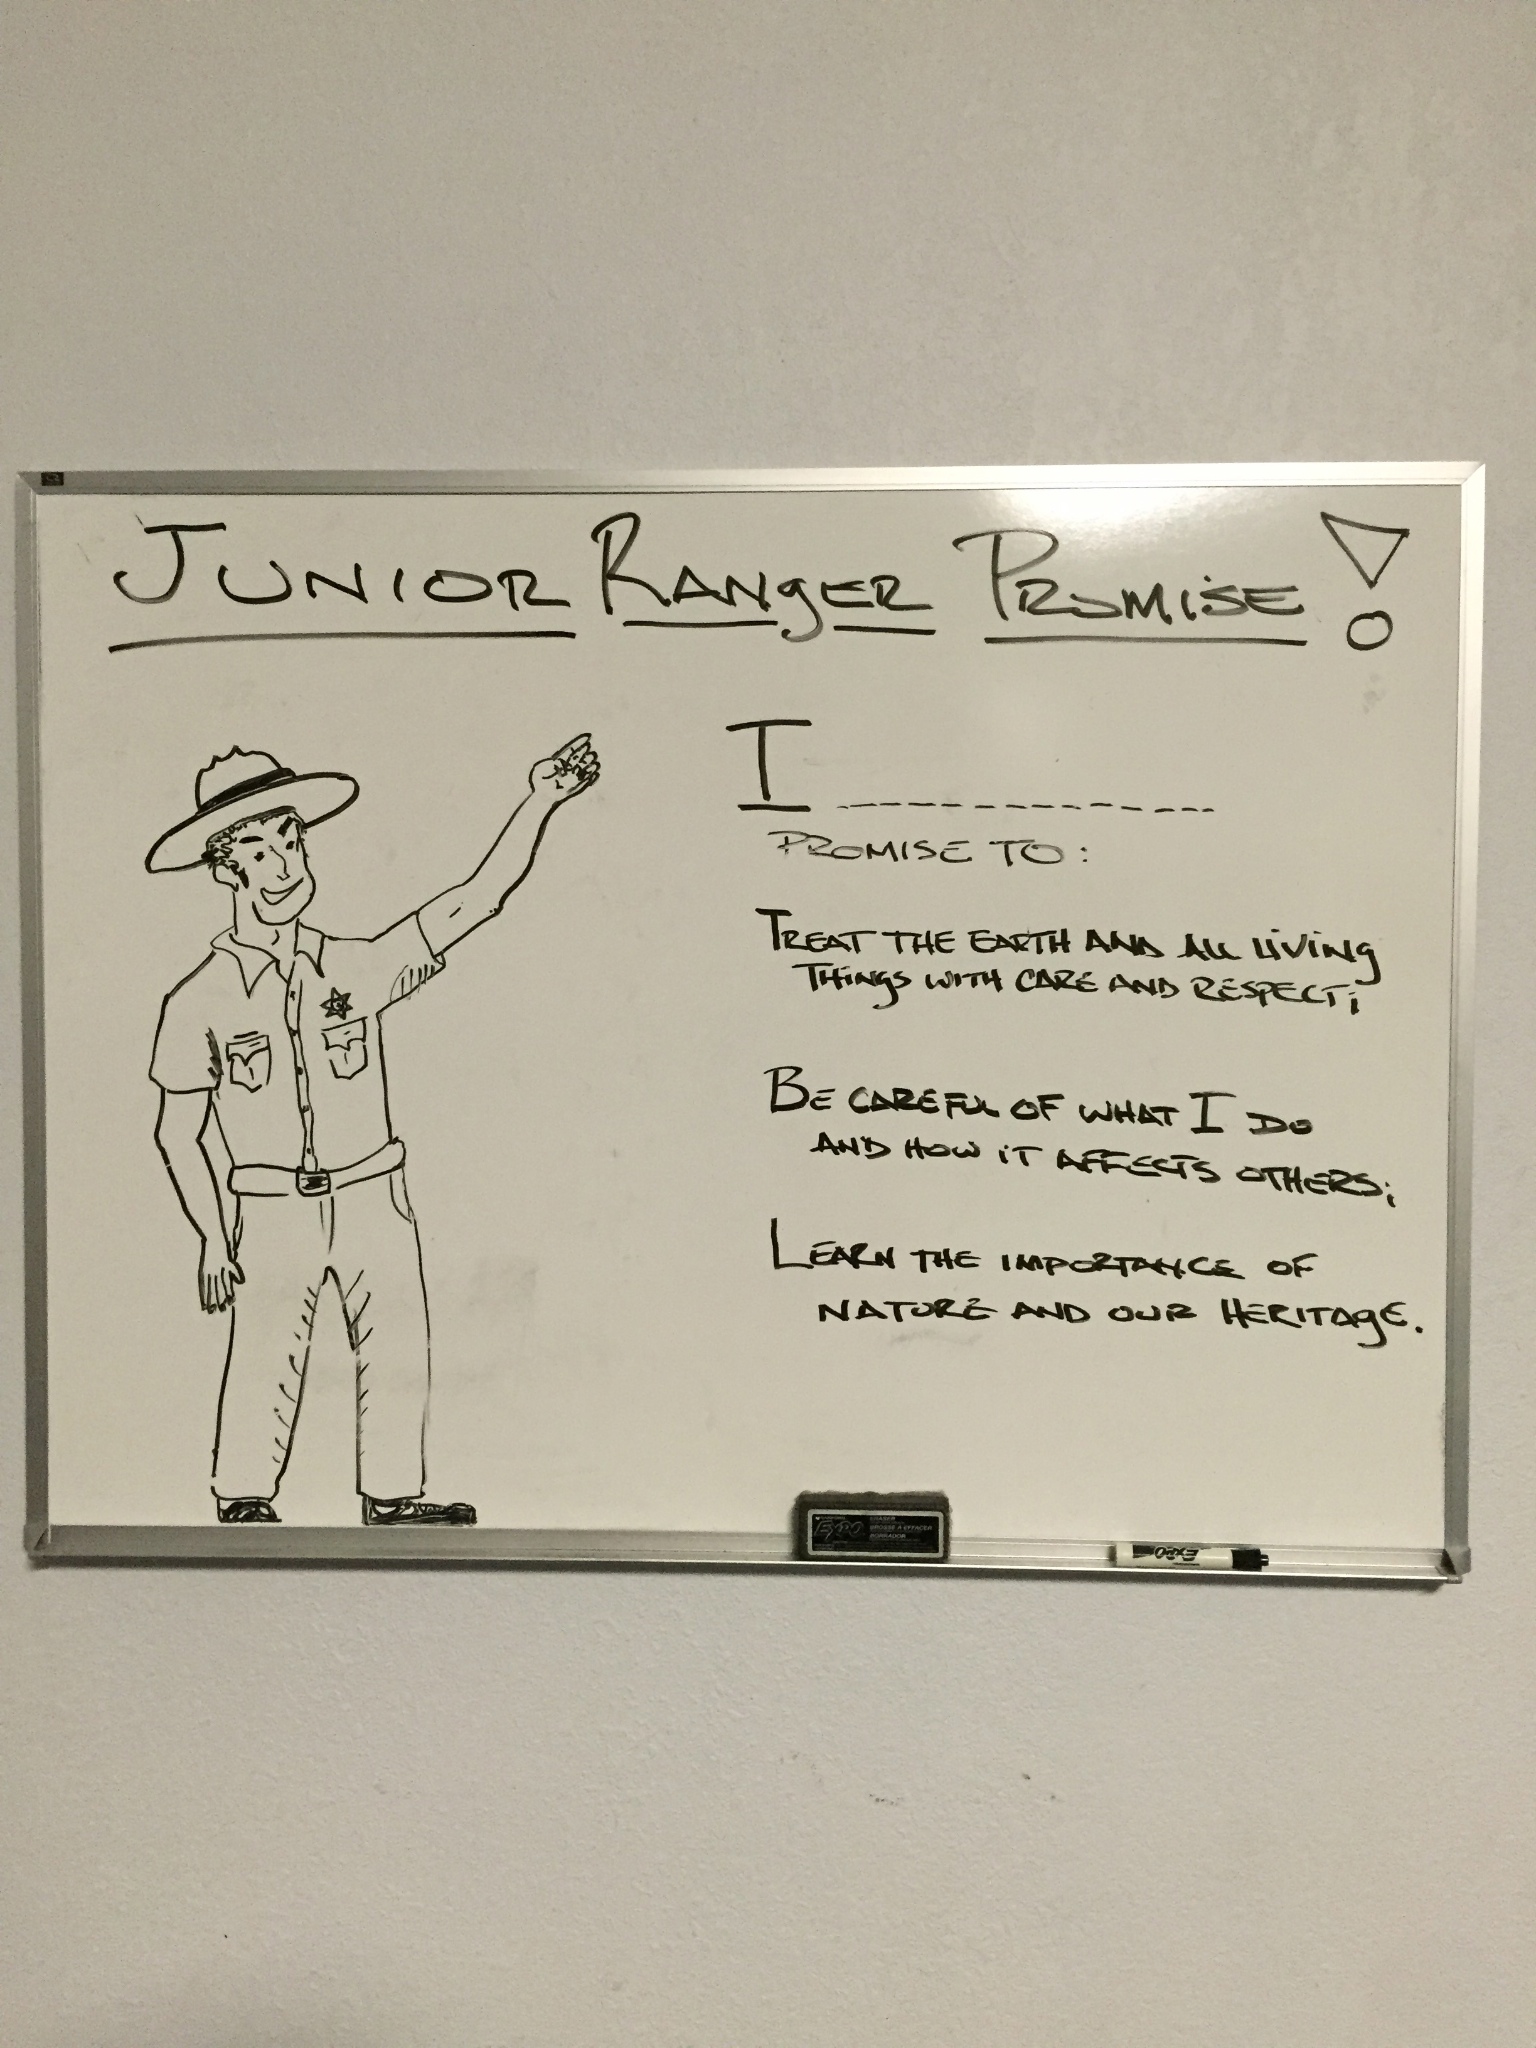 JUNIOR RANGER PROMISE!
I ------------
PROMISE TO:
TREAT THE EARTH AND ALL LIVING
THINGS WITH CARE AND RESPECT;
BE CAREFUL OF WHAT I DO
AND HOW IT AFFECTS OTHERS;
LEARN THE IMPORTANCE OF
NATURE AND OUR HERITAGE.
EXPO
ERASER
BROSSE À EFFACER
BORRADOR
EXPO